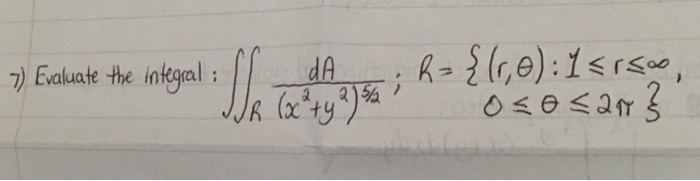 7) Evaluate the integral : ∬_R dA/(x²+y²)^{5/2} ; R = {(r,θ) : 1 ≤ r ≤ ∞,
0 ≤ θ ≤ 2π}